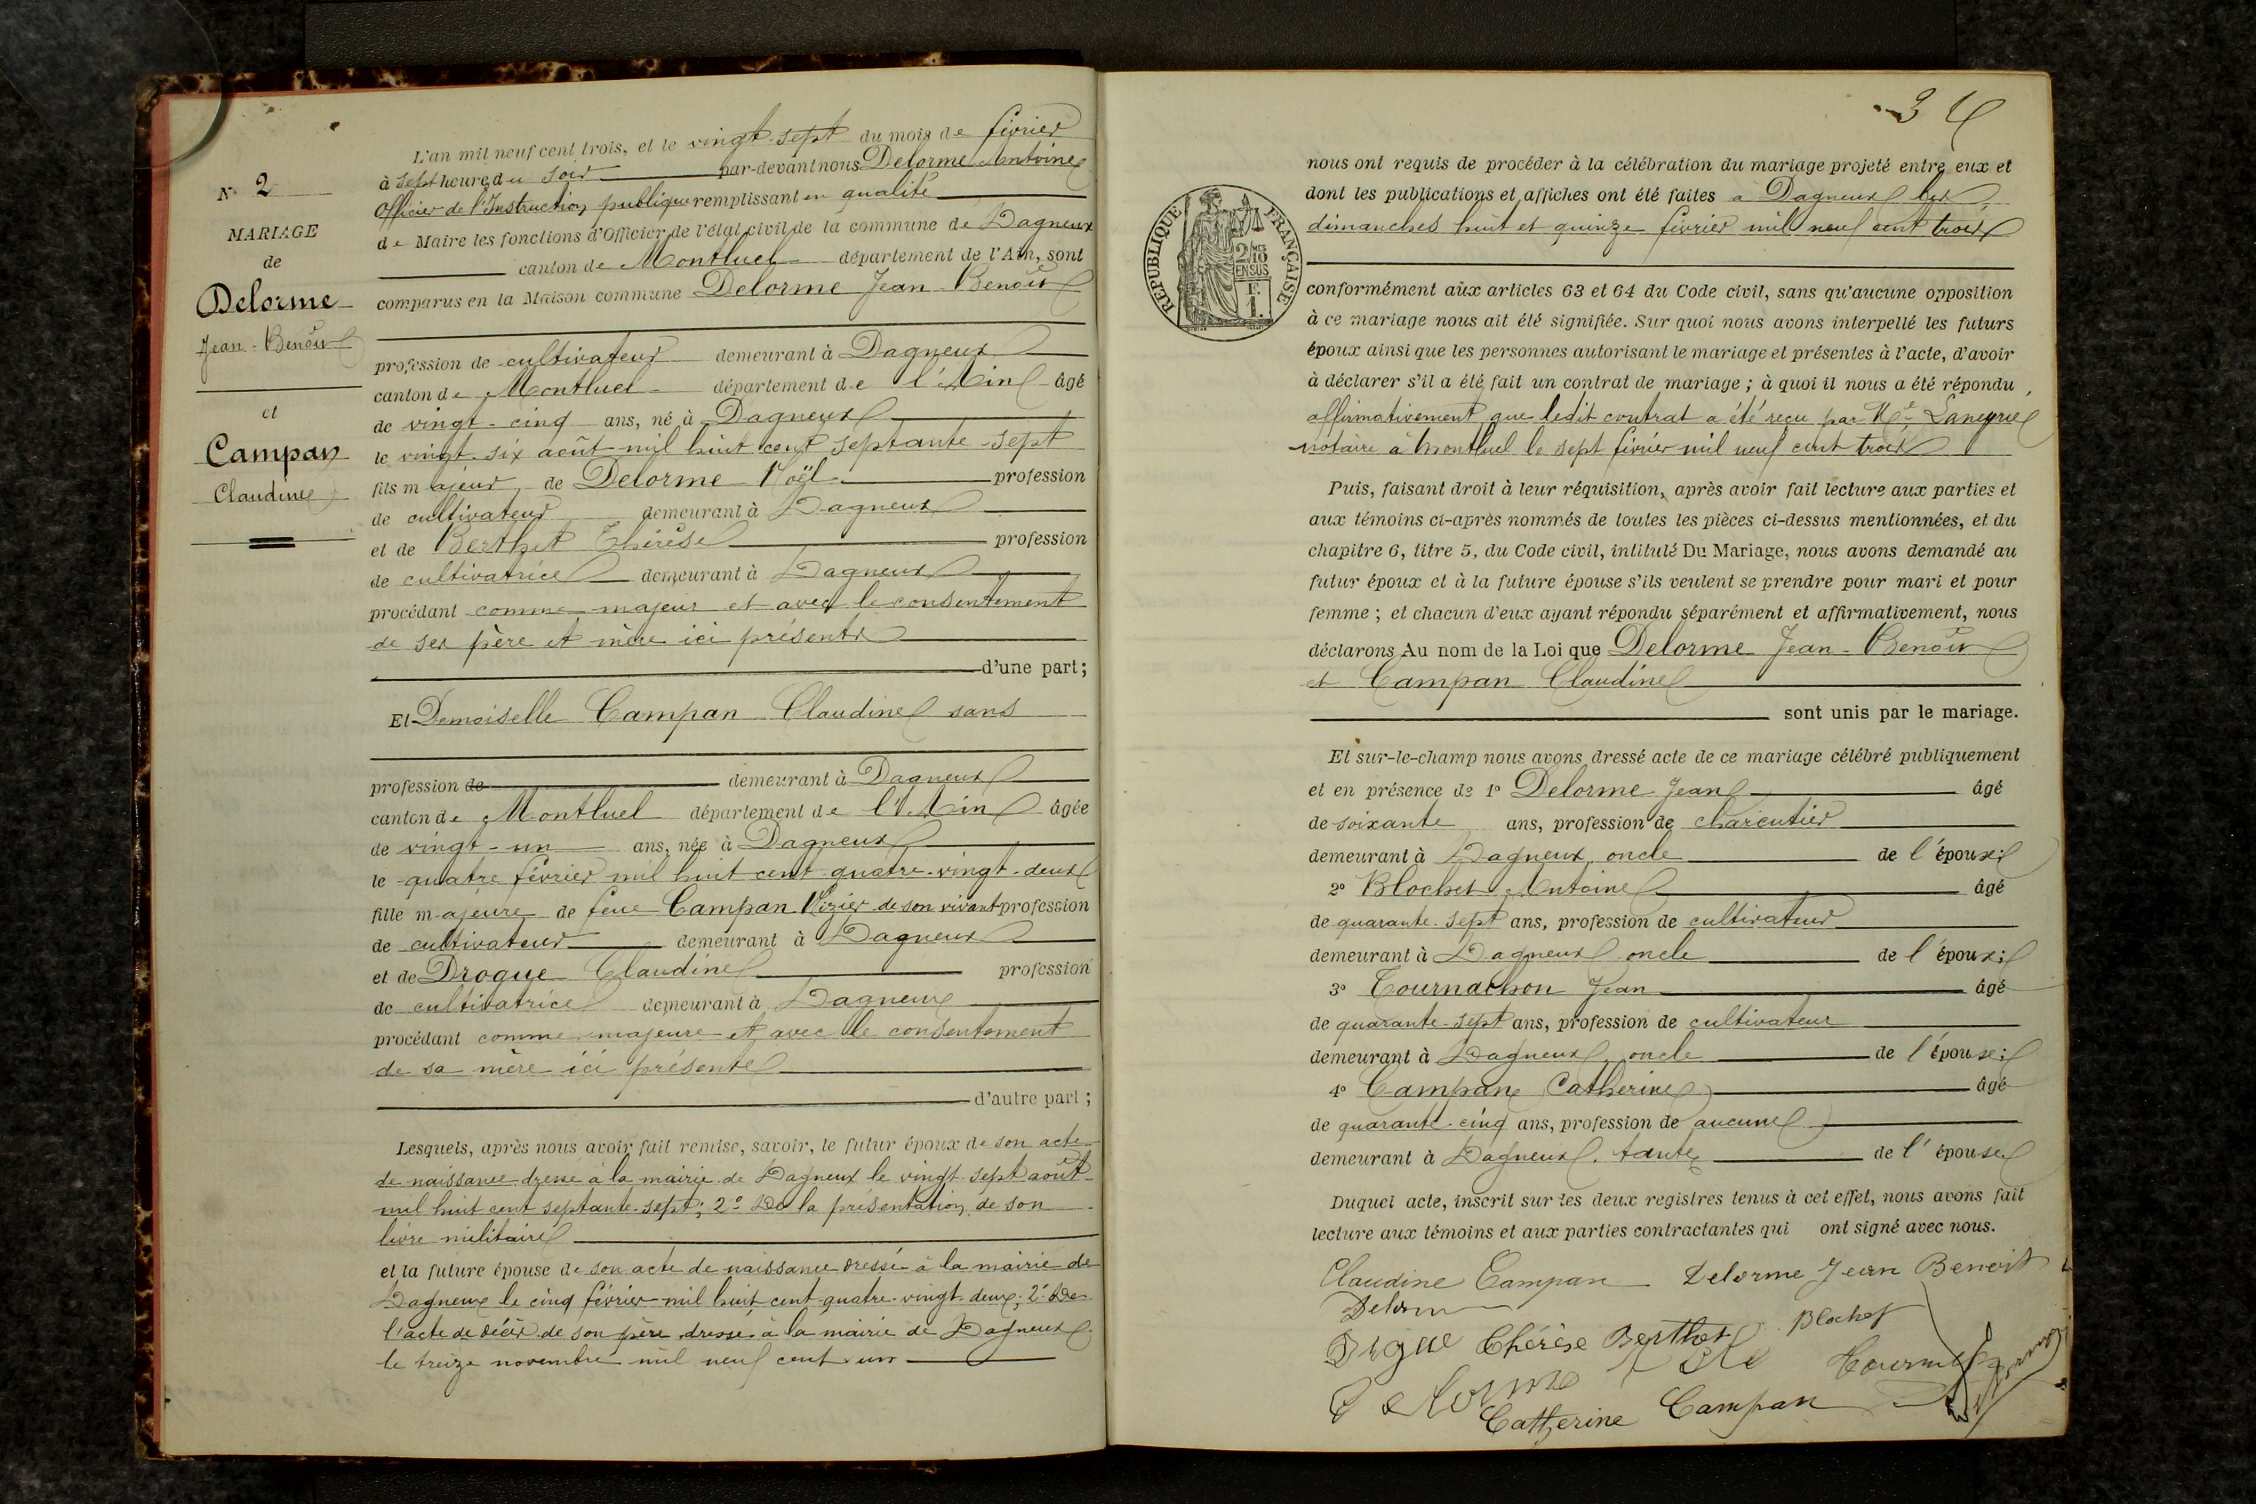 N° 2
MARIAGE
de
Delorme
Jean-Benoit
et
Campan
Claudine
L'an mil neuf cent trois, et le vingt-sept du mois de février
à sept heure du soir par-devant nous Delorme Antoine
Officier de l'Instruction publique remplissant en qualité
de Maire les fonctions d'Officier de l'état civil de la commune de Dagneux
canton de Montluel département de l'Ain, sont
comparus en la Maison commune Delorme Jean-Benoit
profession de cultivateur demeurant à Dagneux
canton de Montluel département de l'Ain âgé
de vingt-cinq ans, né à Dagneux
le vingt-six août mil huit cent septante-sept
fils majeur de Delorme Noël profession
de cultivateur demeurant à Dagneux
et de Berthet Thérèse profession
de cultivatrice demeurant à Dagneux
procédant comme majeur et avec le consentement
de ses père et mère ici présents
d'une part;
Et Demoiselle Campan Claudine sans
profession de demeurant à Dagneux
canton de Montluel département de l'Ain âgée
de vingt-un ans, née à Dagneux
le quatre février mil huit cent quatre-vingt-deux
fille majeure de feue Campan de son vivant profession
de cultivateur demeurant à Dagneux
et de Drogue Claudine profession
de cultivatrice demeurant à Dagneux
procédant comme majeure et avec le consentement
de sa mère ici présente
d'autre part;
Lesquels, après nous avoir fait remise, savoir, le futur époux de son acte
de naissance dressé à la mairie de Dagneux le vingt-sept août
mil huit cent septante-sept; 2° De la présentation de son
livre militaire
et la future épouse de son acte de naissance dressé à la mairie de
Dagneux le cinq février mil huit cent quatre-vingt-deux; 2° De
l'acte de décès de son père dressé à la mairie de Dagneux
le treize novembre mil neuf cent un
3
RÉPUBLIQUE FRANÇAISE
2/10
EN SUS
F.
1.
nous ont requis de procéder à la célébration du mariage projeté entre eux et
dont les publications et affiches ont été faites a Dagneux les
dimanches huit et quinze février mil neuf cent trois
conformément aux articles 63 et 64 du Code civil, sans qu'aucune opposition
à ce mariage nous ait été signifiée. Sur quoi nous avons interpellé les futurs
époux ainsi que les personnes autorisant le mariage et présentes à l'acte, d'avoir
à déclarer s'il a été fait un contrat de mariage; à quoi il nous a été répondu
affirmativement que ledit contrat a été reçu par Me Laneyrie
notaire à Montluel le sept février mil neuf cent trois
Puis, faisant droit à leur réquisition, après avoir fait lecture aux parties et
aux témoins ci-après nommés de toutes les pièces ci-dessus mentionnées, et du
chapitre 6, titre 5, du Code civil, intitulé Du Mariage, nous avons demandé au
futur époux et à la future épouse s'ils veulent se prendre pour mari et pour
femme; et chacun d'eux ayant répondu séparément et affirmativement, nous
déclarons Au nom de la Loi que Delorme Jean-Benoit
et Campan Claudine
sont unis par le mariage.
Et sur-le-champ nous avons dressé acte de ce mariage célébré publiquement
et en présence de 1° Delorme Jean âgé
de soixante ans, profession de charcutier
demeurant à Dagneux, oncle de l'époux;
2° Blochet Antoine âgé
de quarante-sept ans, profession de cultivateur
demeurant à Dagneux oncle de l'époux;
3° Tournachon Jean âgé
de quarante-sept ans, profession de cultivateur
demeurant à Dagneux oncle de l'épouse;
4° Campan Catherine âgé
de quarante-cinq ans, profession de aucune
demeurant à Dagneux. tante de l'épouse
Duquel acte, inscrit sur les deux registres tenus à cet effet, nous avons fait
lecture aux témoins et aux parties contractantes qui ont signé avec nous.
Claudine Campan Delorme Jean Benoit
Delorme
Thérèse Berthet Blochet
Delorme
Catherine Campan